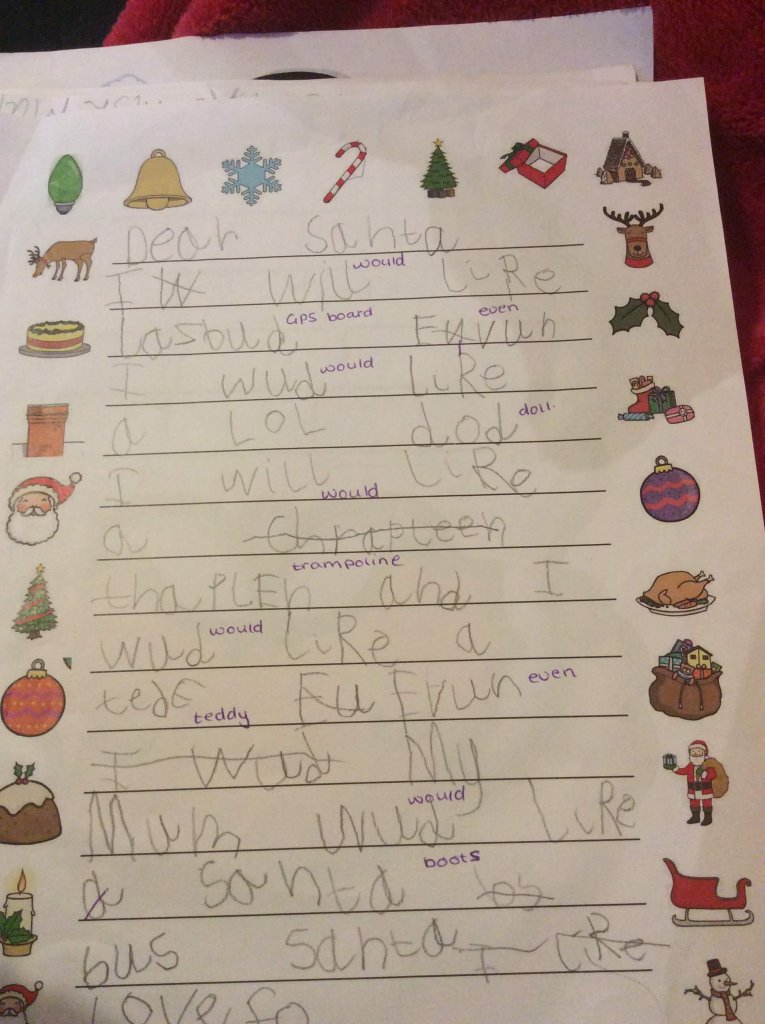 Dear Santa
I W will would like
Lasbud GPS board Envun even
I wud would like
a LOL dod doll.
I will would like
a thrapteen
thaplen trampoline and I
wud would like a
tede teddy Eu Evun even
I wud My
Mum wud would like
a Santa bos boots
bus Santa I like
Love